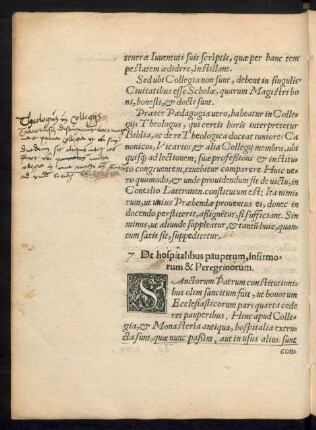 tenerae Iuuentuti suis scriptis, quae per hanc tem
pestatem aedidere, Instillant.
Sed ubi Collegia non sunt, debent in singulis
Ciuitatibus esse Scholae, quarum Magistri bo
ni, honesti, & docti sunt.
Praeter Paedagogia uero, habeatur in Colle
gijs Theologus, qui certis horis interpretetur
Biblia, ac de re Theologica doceat iuniores Ca
nonicos, Vicarios, & alia Collegij membra, ubi
quisq; ad lectionem, suae professioni & instituto
congruentem, tenebitur comparere Huic ue
ro quomodo, & unde prouidendum sit de uictu, in
Concilio Lateranen. constitutum est: Ita nimi
rum, ut unius Praebendae prouentus ei, donec in
docendo perstiterit, assignetur, si sufficiant. Sin
minus, ut aliunde suppleatur, & tantum huic, quan
tum satis sit, suppeditetur.
7 De hospitalibus pauperum, infirmo-
rum & Peregrinorum.
SAnctorum Patrum constitutioni
bus olim sancitum fuit, ut bonorum
Ecclesiasticorum pars quarta cede
ret pauperibus. Hinc apud Colle
gia, & Monasteria antiqua, hospitalia extru
cta sunt, quae nunc passim, aut in usus alios sunt
con-
Theologus in Collegijs